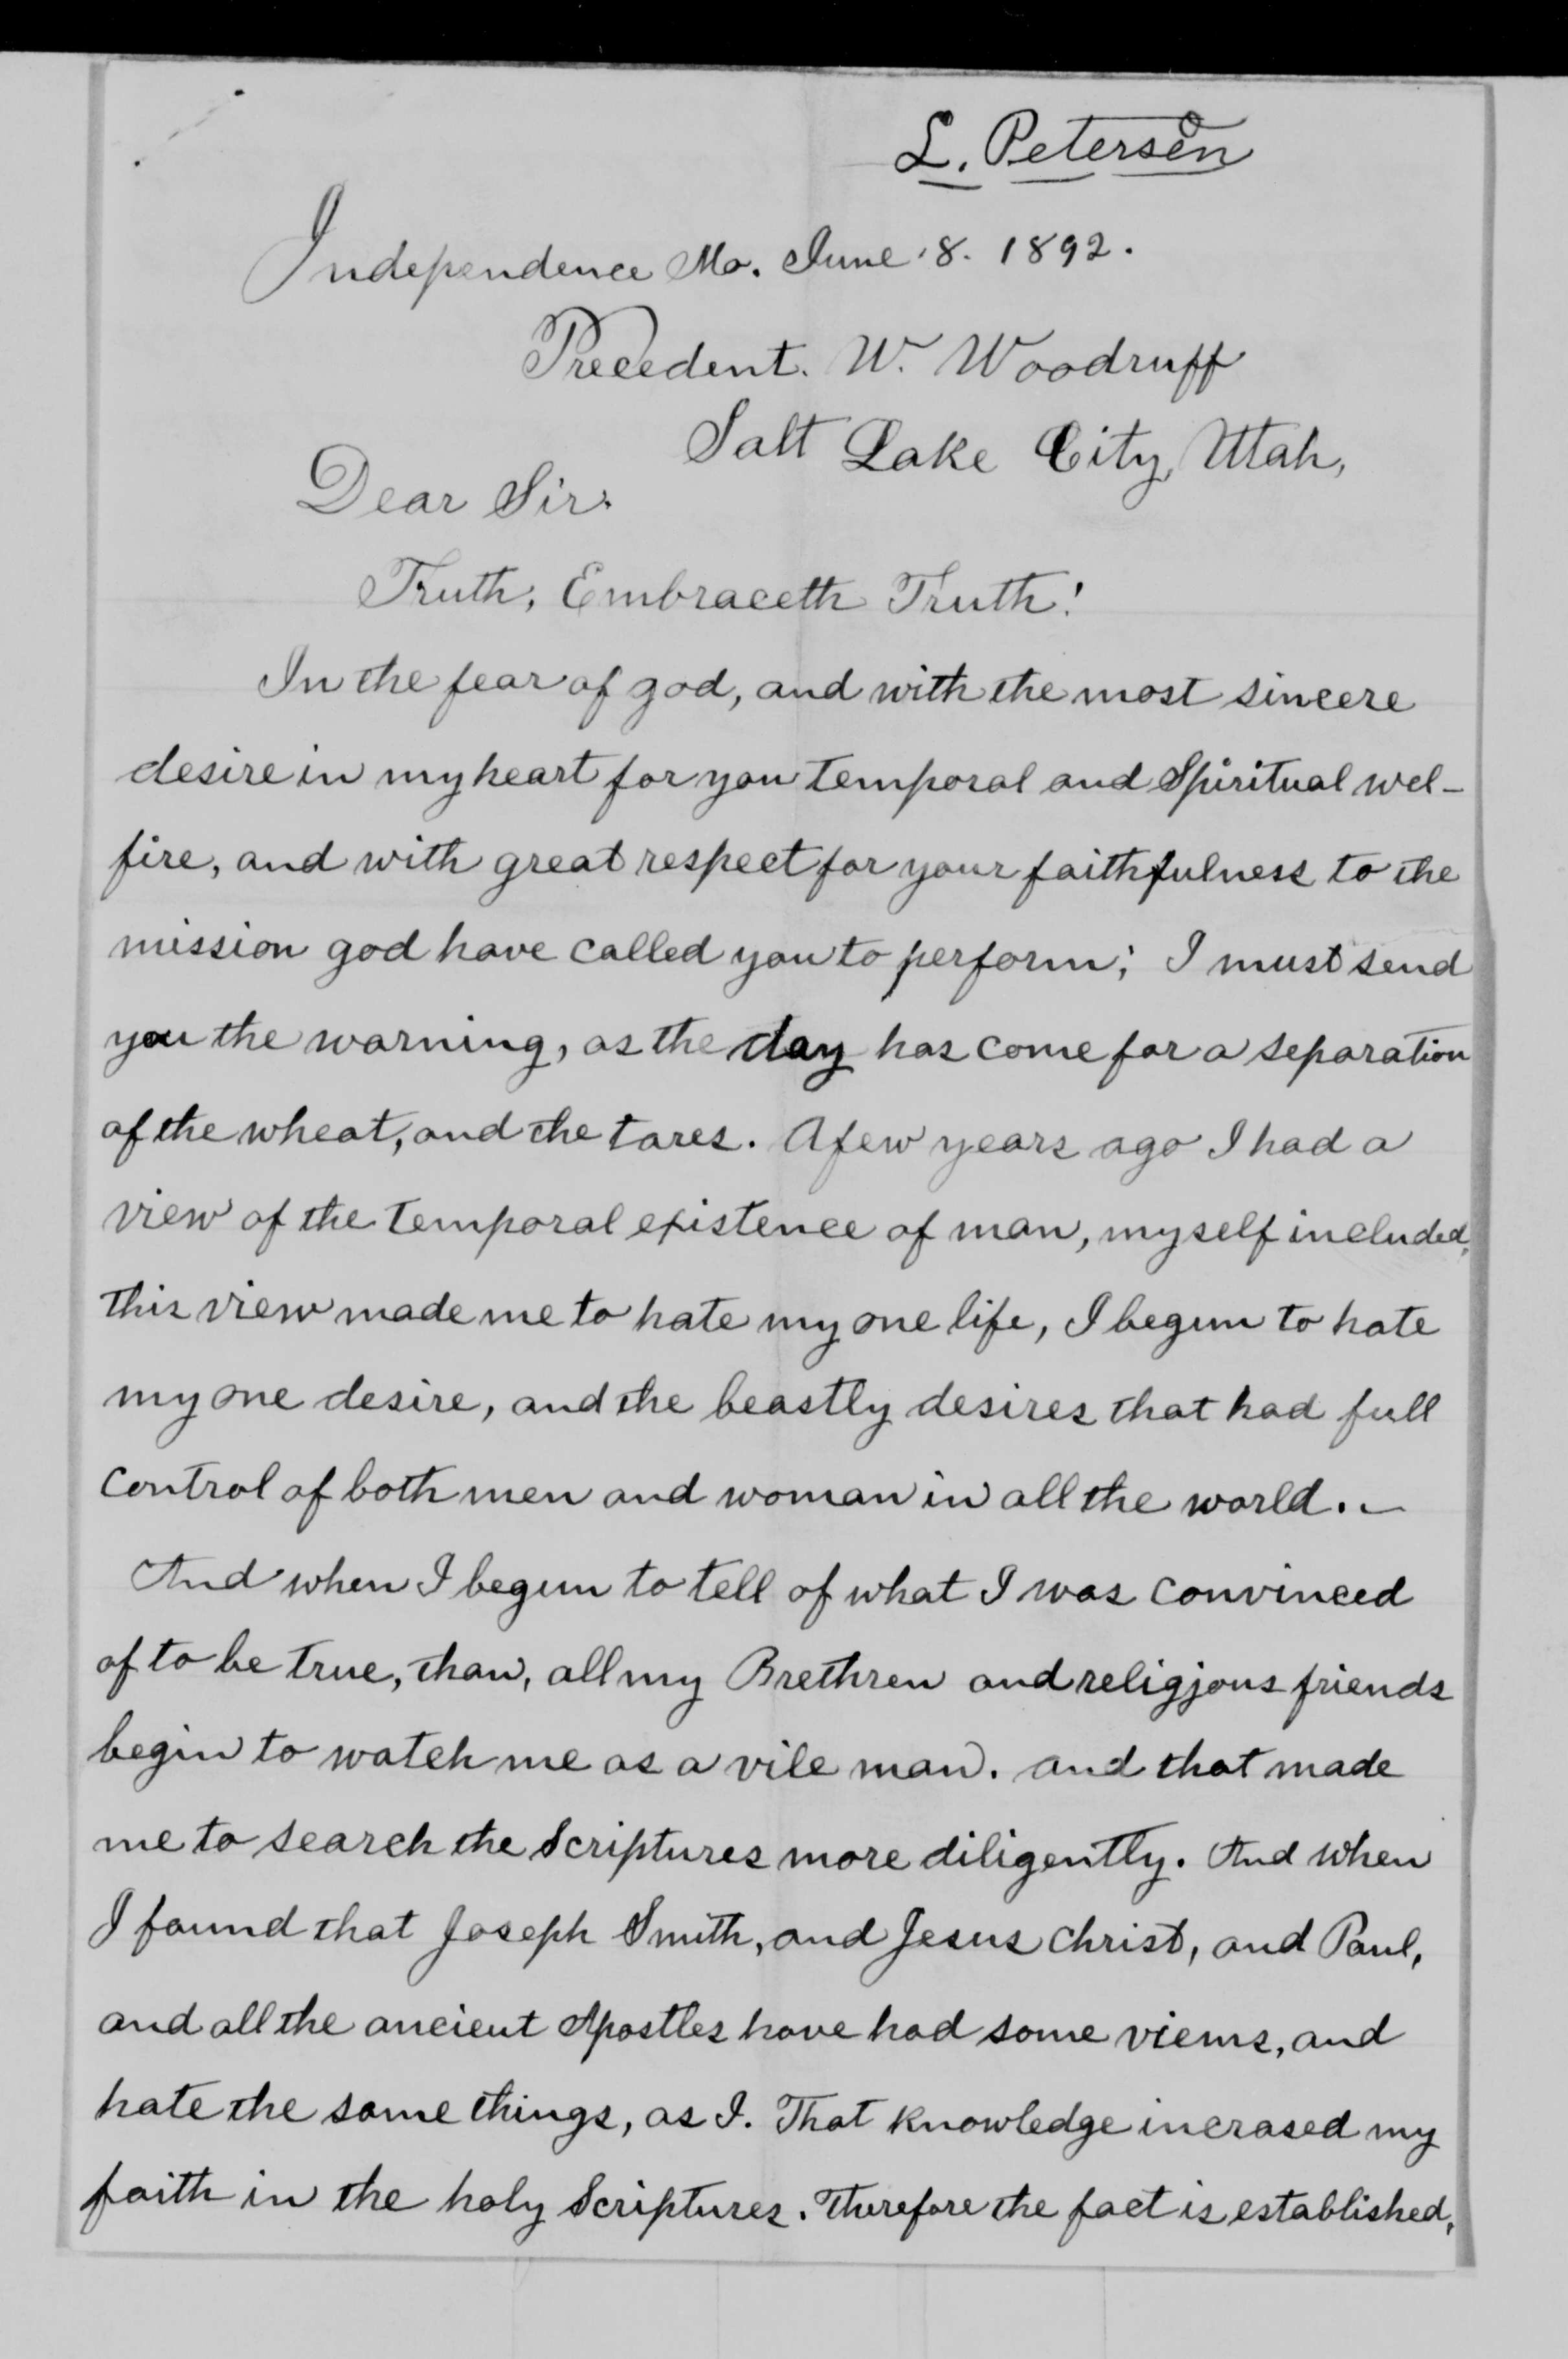 L. Petersen
Independence Mo. June 8. 1892.
Precedent. W. Woodruff
Salt Lake City, Utah,
Dear Sir.
Truth, Embraceth Truth!
In the fear of god, and with the most sincere
desire in my heart for you temporal and Spiritual wel-
fire, and with great respect for your faithfulness to the
mission god have called you to perform; I must send
you the warning, as the day has come for a separation
of the wheat, and the tares. A few years ago I had a
view of the temporal existence of man, myself included,
this view made me to hate my one life, I begun to hate
my one desire, and the beastly desires that had full
control of both men and woman in all the world. –
And when I begun to tell of what I was convinced
of to be true, than, all my Brethren and religjous friends
begin to watch me as a vile man. and that made
me to search the Scriptures more diligently. And when
I found that Joseph Smith, and Jesus Christ, and Paul,
and all the ancient Apostles have had some views, and
hate the same things, as I. That knowledge incrased my
faith in the holy Scriptures. Therefore the fact is established,